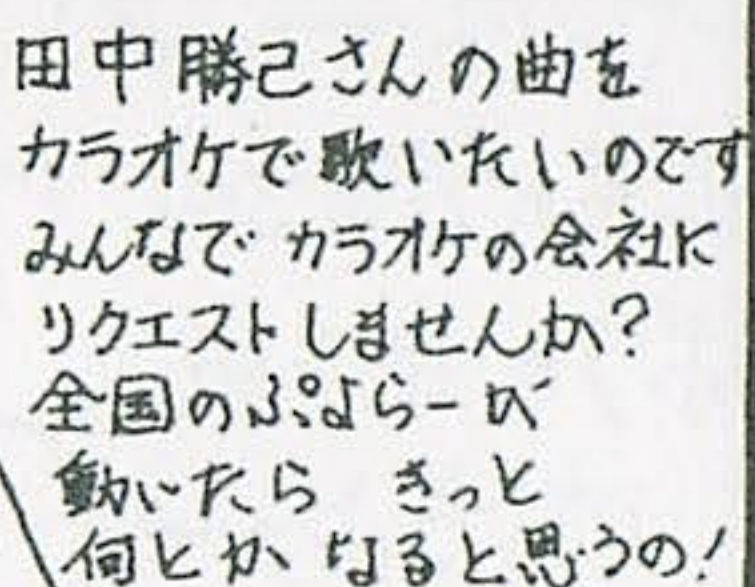 田中勝己さんの曲を
カラオケで歌いたいのです
みんなで カラオケの会社に
リクエストしませんか?
全国のぷよらーが
動いたら きっと
何とか なると思うの!